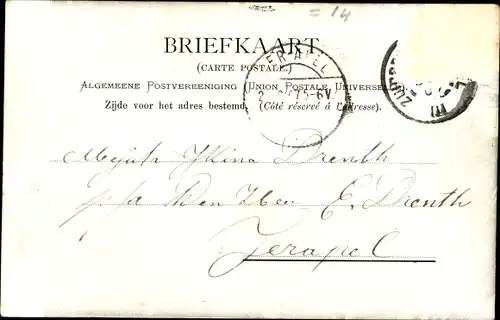 = 14
BRIEFKAART.
(CARTE POSTALE.)
ALGEMEENE POSTVEREENIGING (UNION POSTALE UNIVERSELLE
Zijde voor het adres bestemd. (Côté réservé à l'adresse.)
5-6V
Mejuf Drenth
p/a den Heer E. Drenth
Ter Apel